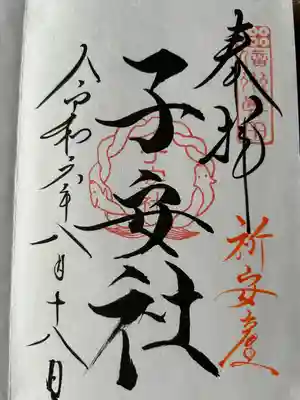 奉拝
祈安産
子安社
令和六年八月十八日